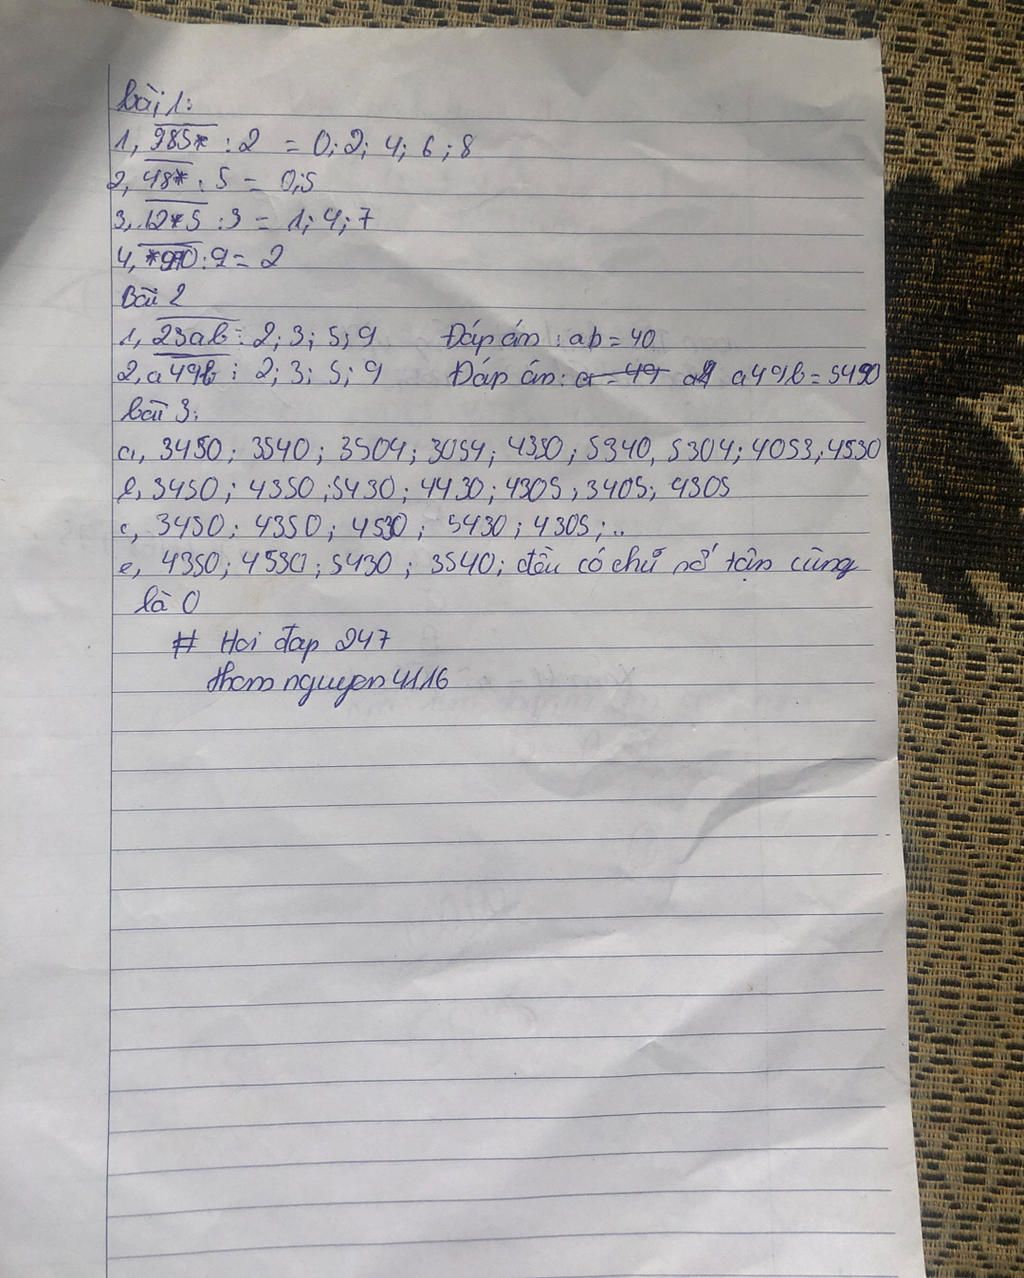 Bài 1:
1, 985* : 2 = 0; 2; 4; 6; 8
2, 48* : 5 = 0; 5
3, 12*5 : 3 = 1; 4; 7
4, *970 : 9 = 2
Bài 2
1, 23ab : 2; 3; 5; 9 Đáp án : ab = 40
2, a49b : 2; 3; 5; 9 Đáp án: a = 49 a49b = 5490
bài 3:
a, 3450; 3540; 3504; 3054; 4350; 5340, 5304; 4053, 4530
b, 3450; 4350; 5430; 4430; 4305; 3405; 4305
c, 3450; 4350; 4530; 5430; 4305; ..
e, 4350; 4530; 5430; 3540; đều có chữ số tận cùng
là 0
# Hoi đap 247
thom nguyen 4116